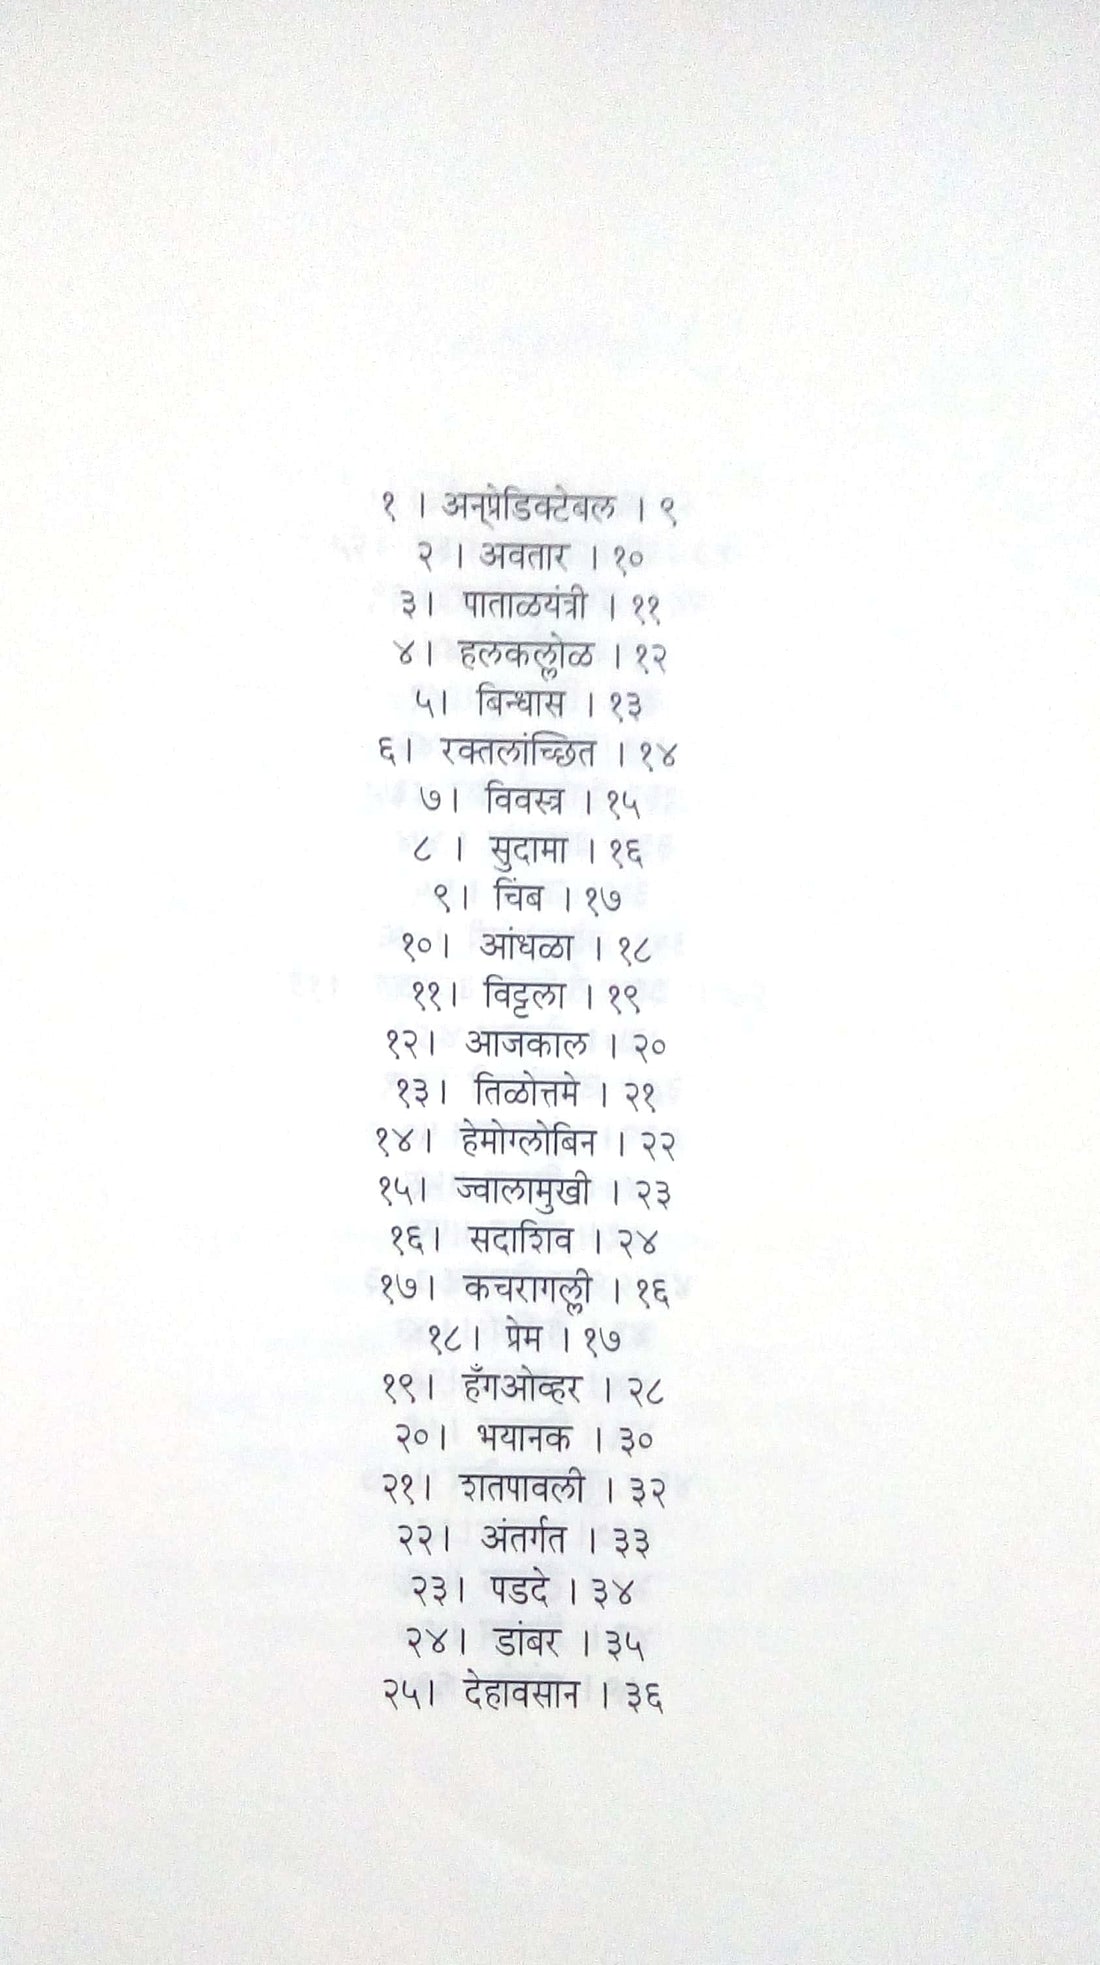 १ । अन्‌प्रेडिक्टेबल । ९
२ । अवतार । १०
३। पाताळयंत्री । ११
४। हलकल्लोळ । १२
५। बिन्धास । १३
६। रक्तलांच्छित । १४
७। विवस्त्र । १५
८ । सुदामा । १६
९। चिंब । १७
१०। आंधळा । १८
११। विट्टला । १९
१२। आजकाल । २०
१३। तिळोत्तमे । २१
१४। हेमोग्लोबिन । २२
१५। ज्वालामुखी । २३
१६। सदाशिव । २४
१७। कचरागल्ली । १६
१८। प्रेम । १७
१९। हँगओव्हर । २८
२०। भयानक । ३०
२१। शतपावली । ३२
२२। अंतर्गत । ३३
२३। पडदे । ३४
२४। डांबर । ३५
२५। देहावसान । ३६